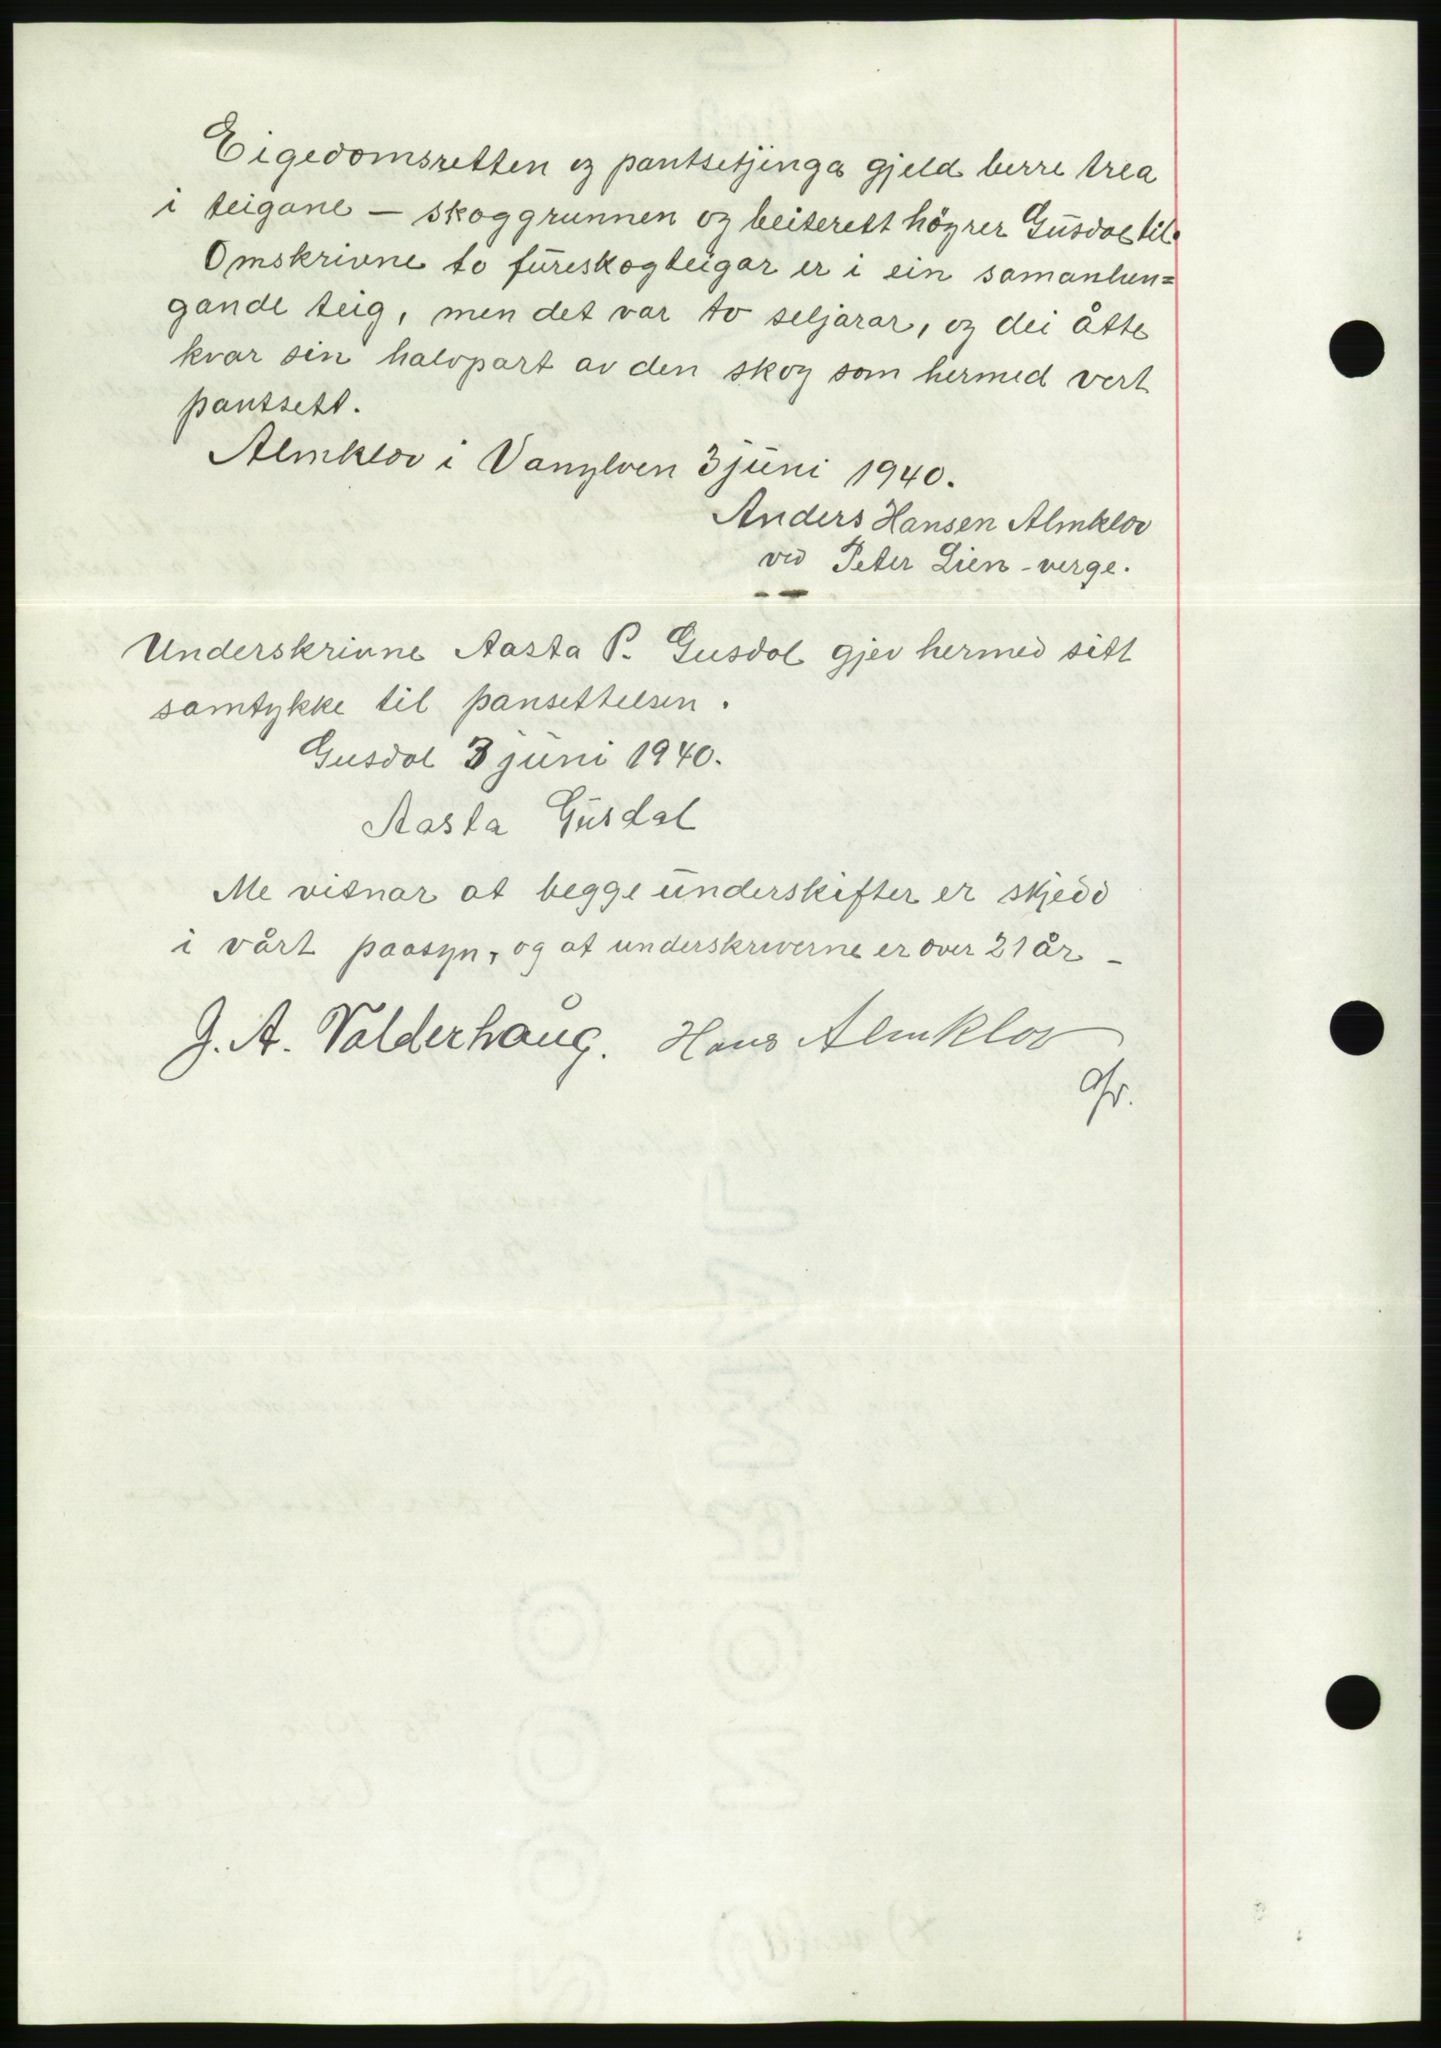 Eigedomsretten og pantsetjinga gjeld berre trea
i teigane — skoggrunnen og beiterett höyrer Gusdal til.
Omskrivne to fureskogteigar er i ein samanhen=
gande teig, men det var to seljarar, og dei åtte
kvar sin halvpart av den skog som hermed vert
pantsett.
Almklov i Vanylven 3 juni 1940.
Anders Hansen Almklov
ved Peter Lien - verge.
Underskrivne Aasta P. Gusdal gjev hermed sitt
samtykke til pansettelsen.
Gusdal 3 juni 1940.
Aasta Gusdal
Me vitnar at begge underskifter er skjedd
i vårt paasyn, og at underskriverne er over 21 år —
J. A. Valderhaug. Hans Almklov